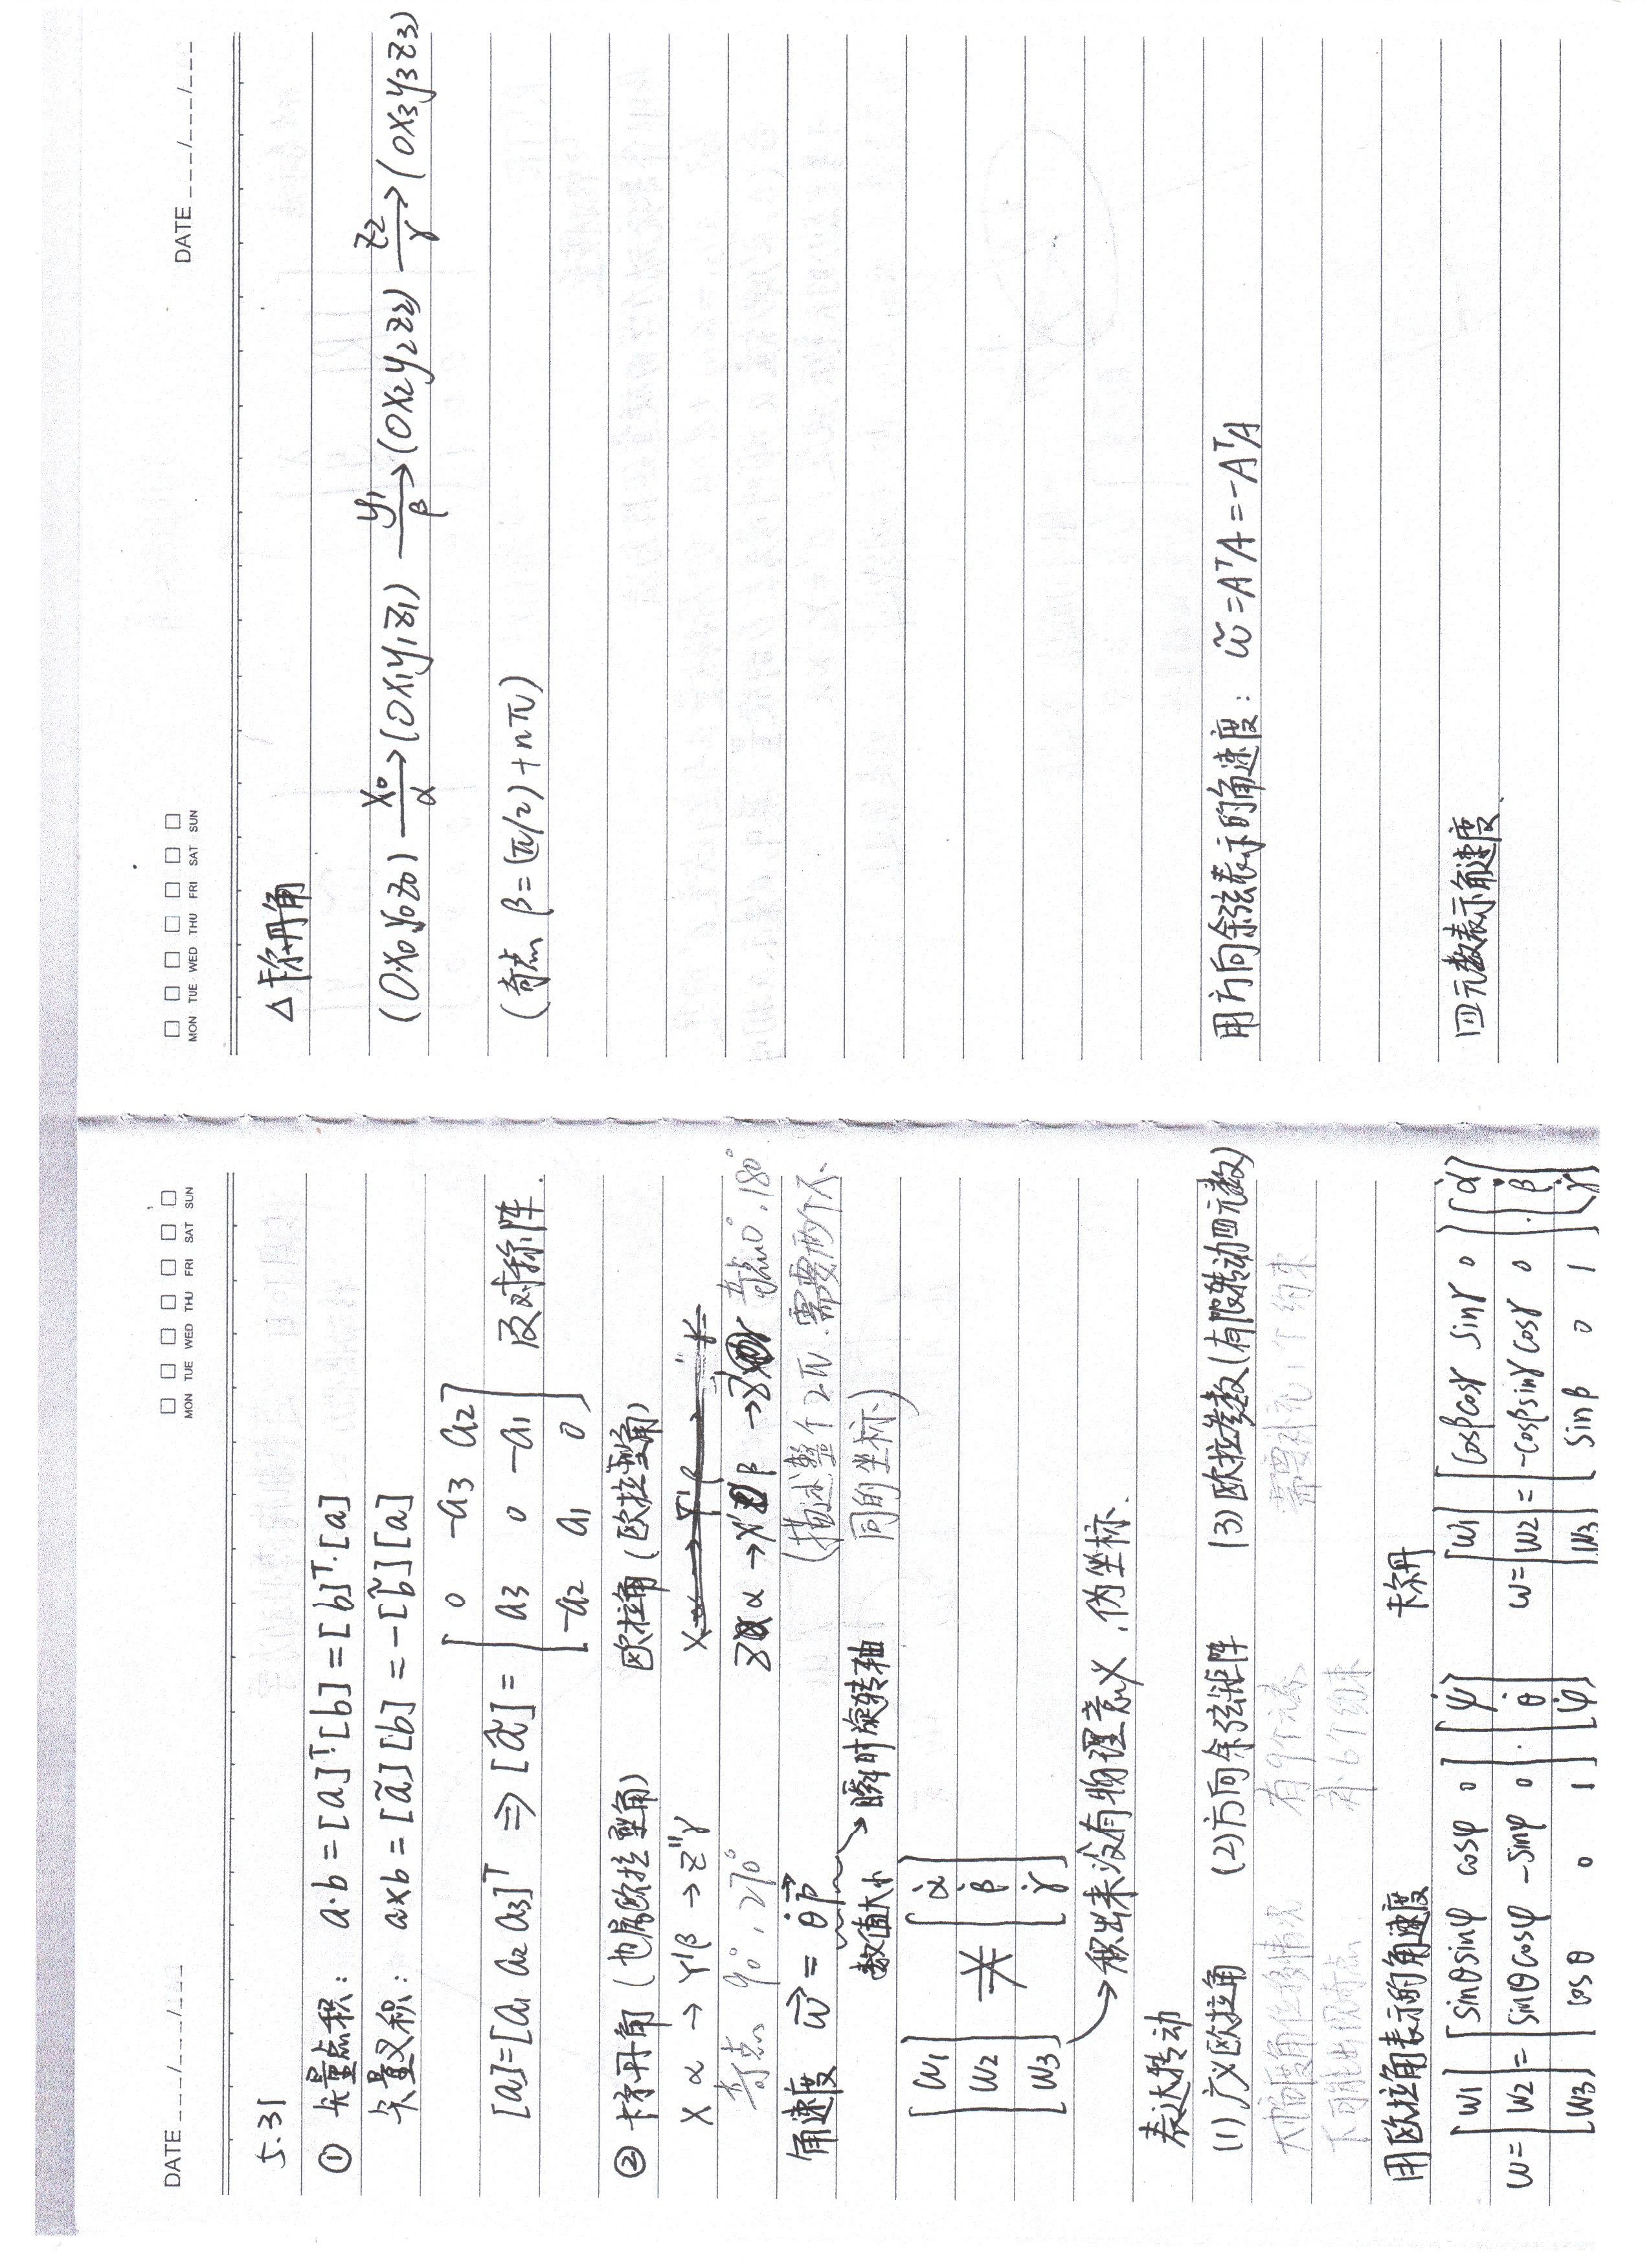 DATE ___/___/___
MON TUE WED THU FRI SAT SUN
5.31
① 矢量点积: a·b = [a]ᵀ·[b] = [b]ᵀ·[a]
矢量叉积: a×b = [ã][b] = -[b̃][a]
[a]=[a1 a2 a3]ᵀ ⇒ [ã] = [0 -a3 a2
a3 0 -a1
-a2 a1 0] 反对称阵.
② 卡尔丹角 (也属欧拉型角) 欧拉角 (欧拉型角)
X α → Y'β → Z''γ
奇点 90°, 270° Z α → X' β → Z γ 奇点0°, 180°
(描述整个2π, 需要两个不
同的坐标)
角速度 ω⃗ = θ̇ p⃗
数值大小 → 瞬时旋转轴
[ω1 ω2 ω3] ⋇ [α̇ β̇ γ̇]
→ 积出来没有物理意义, 伪坐标.
表达转动
(1) 广义欧拉角 (2) 方向余弦矩阵 (3) 欧拉参数(有限转动四元数)
大角度角位移情况 有9个元素 需要补充1个约束
下可能出现奇点. 补6个约束
用欧拉角表示的角速度 卡尔丹
ω= [ω1] [sinθsinφ cosφ 0] [ψ̇] [ω1] [cosβcosγ sinγ 0] [α̇]
[ω2] = [sinθcosφ -sinφ 0] · [θ̇] ω= [ω2] = [-cosβsinγ cosγ 0] · [β̇]
[ω3] [cosθ 0 1] [φ̇] [ω3] [sinβ 0 1] [γ̇]
MON TUE WED THU FRI SAT SUN
DATE ___/___/___
△ 卡尔丹角
(Ox0y0z0) —x0/α→ (Ox1y1z1) —y1/β→ (Ox2y2z2) —z2/γ→ (Ox3y3z3)
(奇点 β=(π/2)+nπ)
用方向余弦表示的角速度: ω̃ = AᵀȦ = -ȦᵀA
四元数表示角速度.